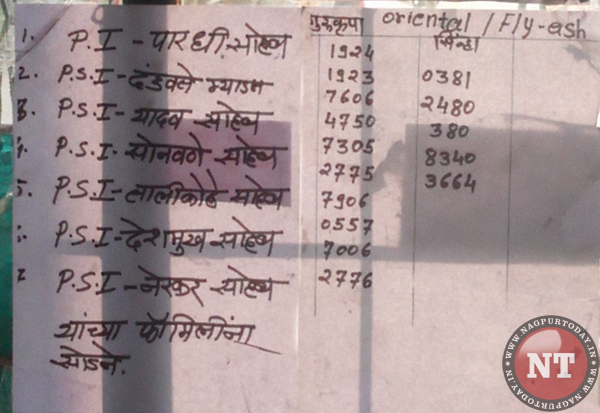 1. P.I - पारधी साहेब
2. P.S.I - दंडवले म्याडम
3. P.S.I - यादव साहेब
4. P.S.I - सोनवणे साहेब
5. P.S.I - तालीकोटे साहेब
P.S.I - देशमुख साहेब
P.S.I - नेरकर साहेब
यांच्या फॅमिलींना
सोडने.
गुरुकृपा
1924
1923
7606
4750
7305
2775
7906
0557
7006
2776
oriental / Fly-ash
0381
2480
380
8340
3664
WWW.NAGPURTODAY.IN
NT
WWW.NAGPURTODAY.IN